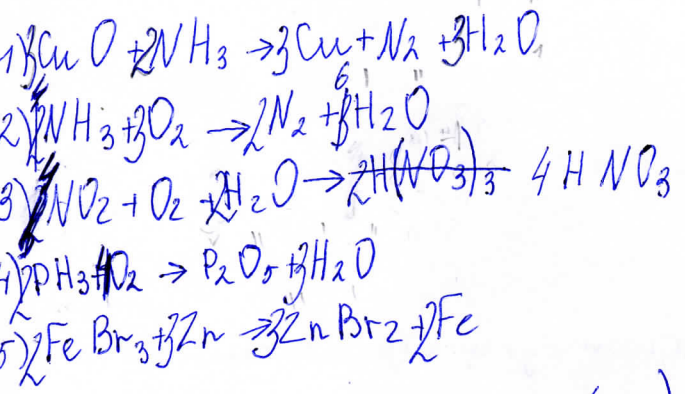 1) 3CuO + 2NH₃ → 3Cu + N₂ + 3H₂O
2) 4NH₃ + 3O₂ → 2N₂ + 6H₂O
3) 4NO₂ + O₂ + 2H₂O → 2H(NO₃)₃ 4HNO₃
4) 2PH₃ + 4O₂ → P₂O₅ + 3H₂O
5) 2FeBr₃ + 3Zn → 3ZnBr₂ + 2Fe